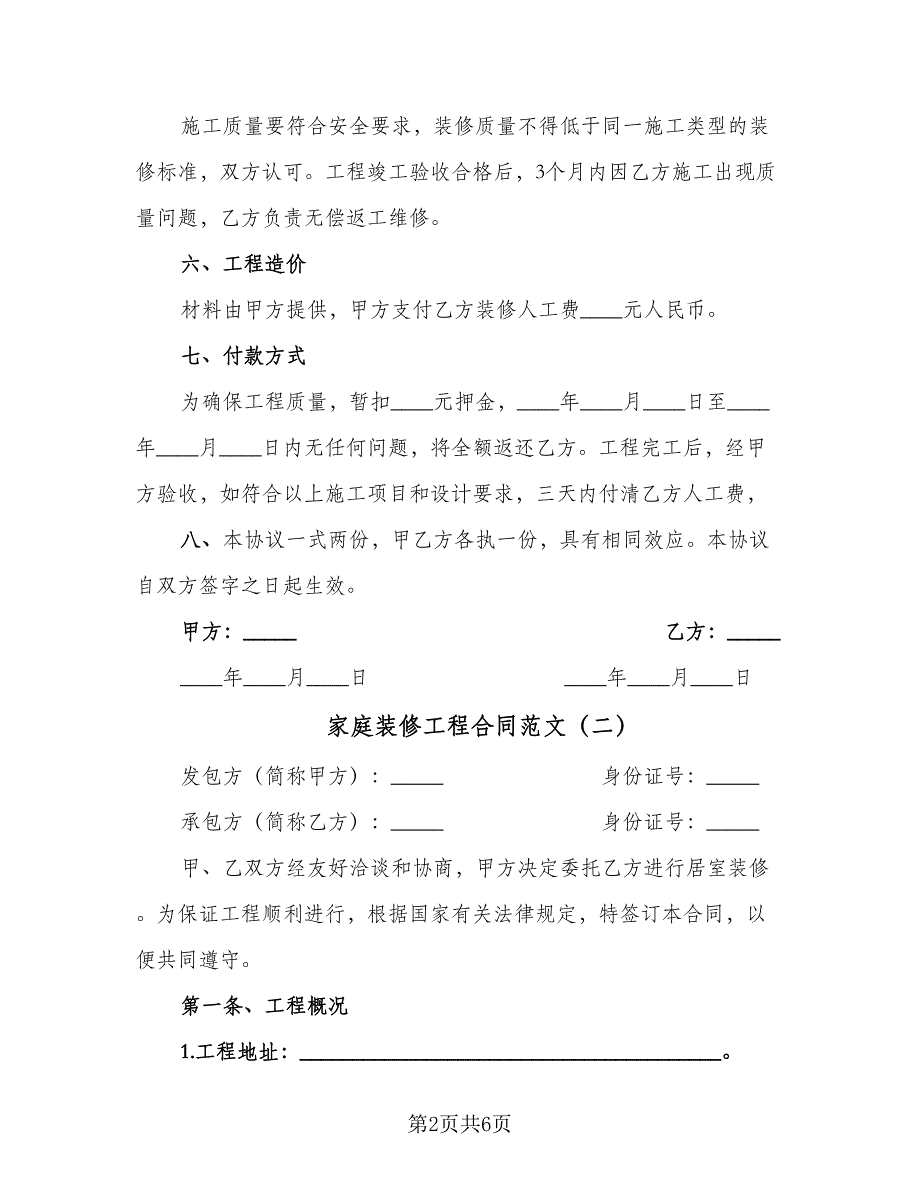 施工质量要符合安全要求，装修质量不得低于同一施工类型的装
修标准，双方认可。工程竣工验收合格后，3个月内因乙方施工出现质
量问题，乙方负责无偿返工维修。
六、工程造价
材料由甲方提供，甲方支付乙方装修人工费____元人民币。
七、付款方式
为确保工程质量，暂扣____元押金，____年____月____日至____
年____月____日内无任何问题，将全额返还乙方。工程完工后，经甲
方验收，如符合以上施工项目和设计要求，三天内付清乙方人工费，
八、本协议一式两份，甲乙方各执一份，具有相同效应。本协议
自双方签字之日起生效。
甲方：_____ 乙方：_____
____年____月____日 ____年____月____日
家庭装修工程合同范文（二）
发包方（简称甲方）：_____ 身份证号：_____
承包方（简称乙方）：_____ 身份证号：_____
甲、乙双方经友好洽谈和协商，甲方决定委托乙方进行居室装修
。为保证工程顺利进行，根据国家有关法律规定，特签订本合同，以
便共同遵守。
第一条、工程概况
1.工程地址：________________________________________。
第2页共6页